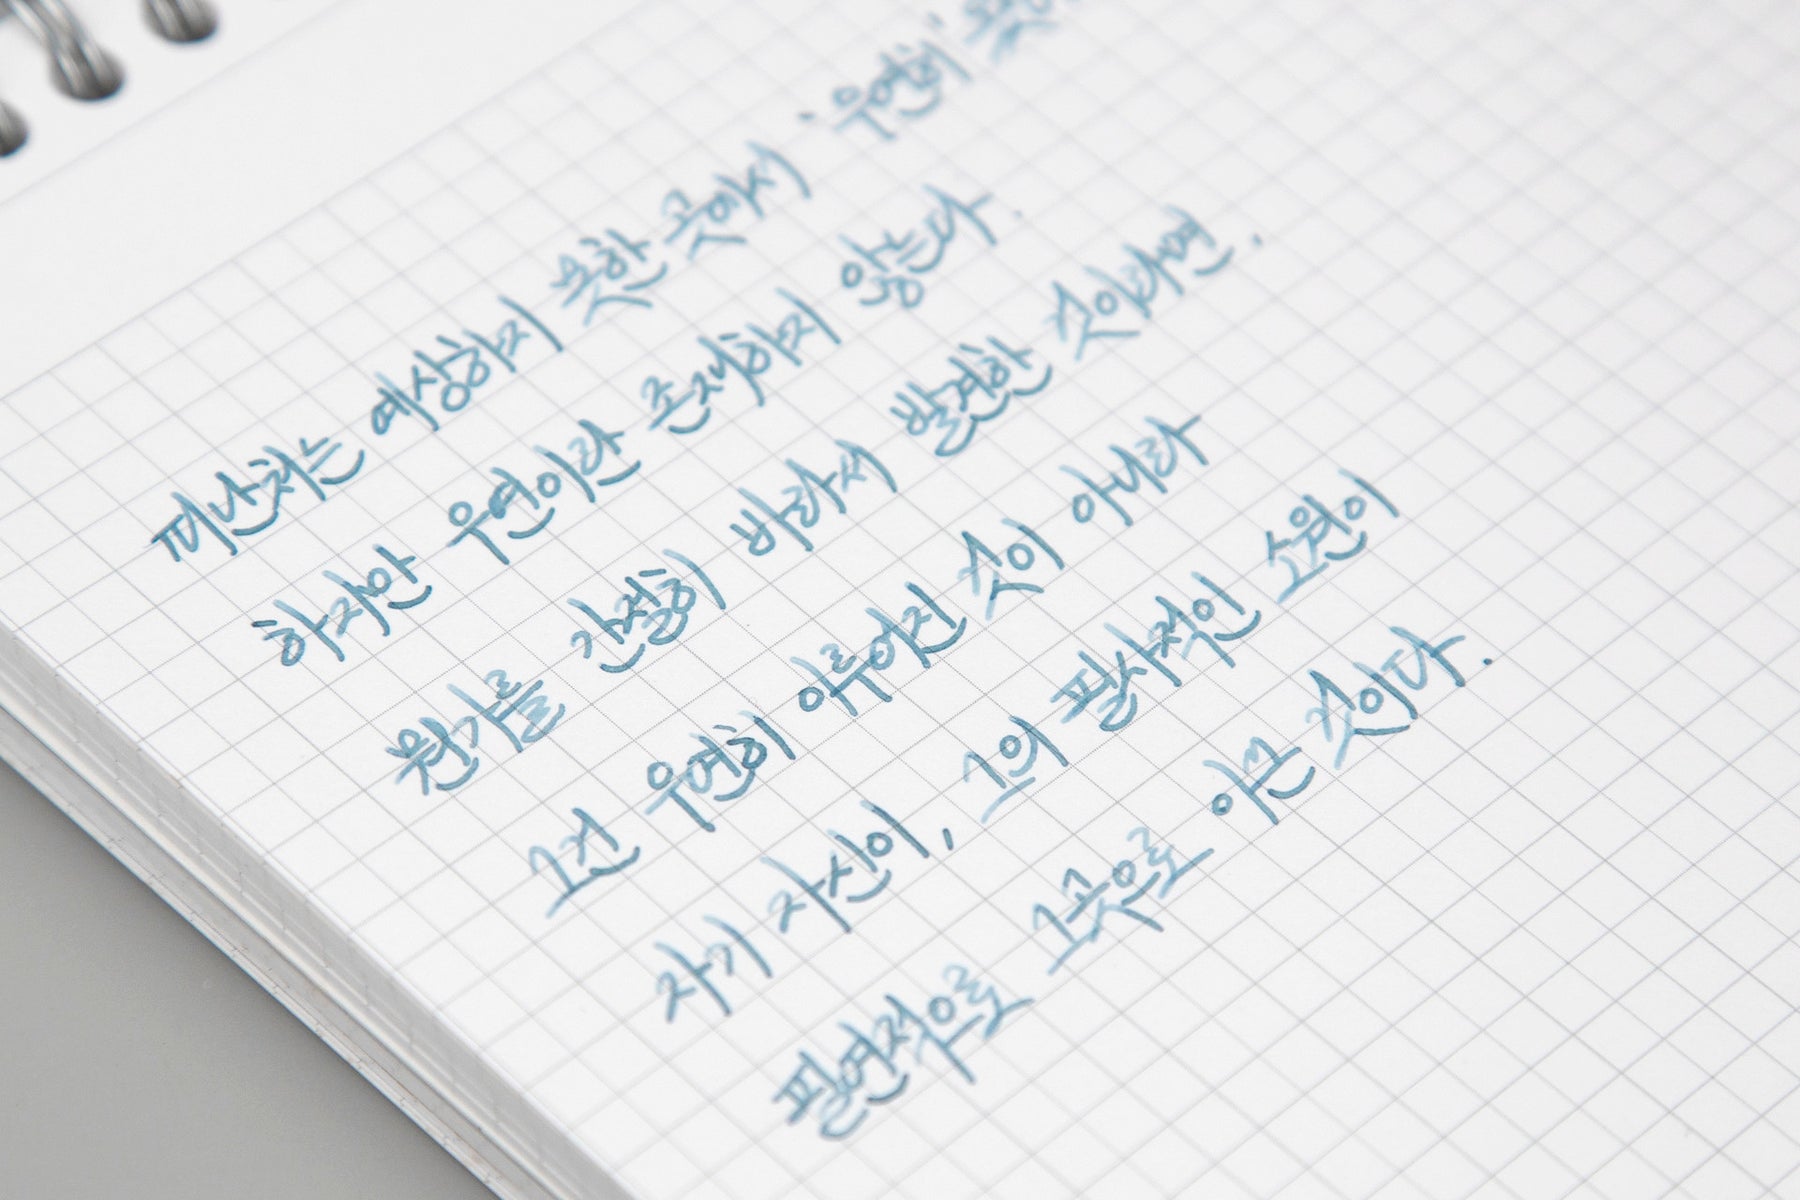 피난처는 예상하지 못한 곳에서 '우연히'
하지만 우연이란 존재하지 않는다.
뭔가를 간절히 바라서 발견한 것이라면.
그건 우연히 이루어진 것이 아니라
자기 자신이, 그의 필사적인 소원이
필연적으로 그곳으로 이끈 것이다.